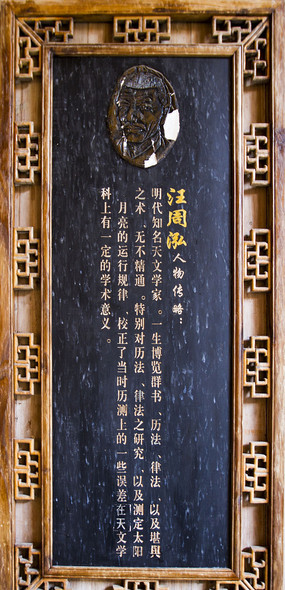 汪周泓人物传略：
明代知名天文学家。一生博览群书、历法、律法、以及堪舆
之术、无不精通。特别对历法、律法之研究、以及测定太阳
月亮的运行规律、校正了当时历测上的一些误差在天文学
科上有一定的学术意义。